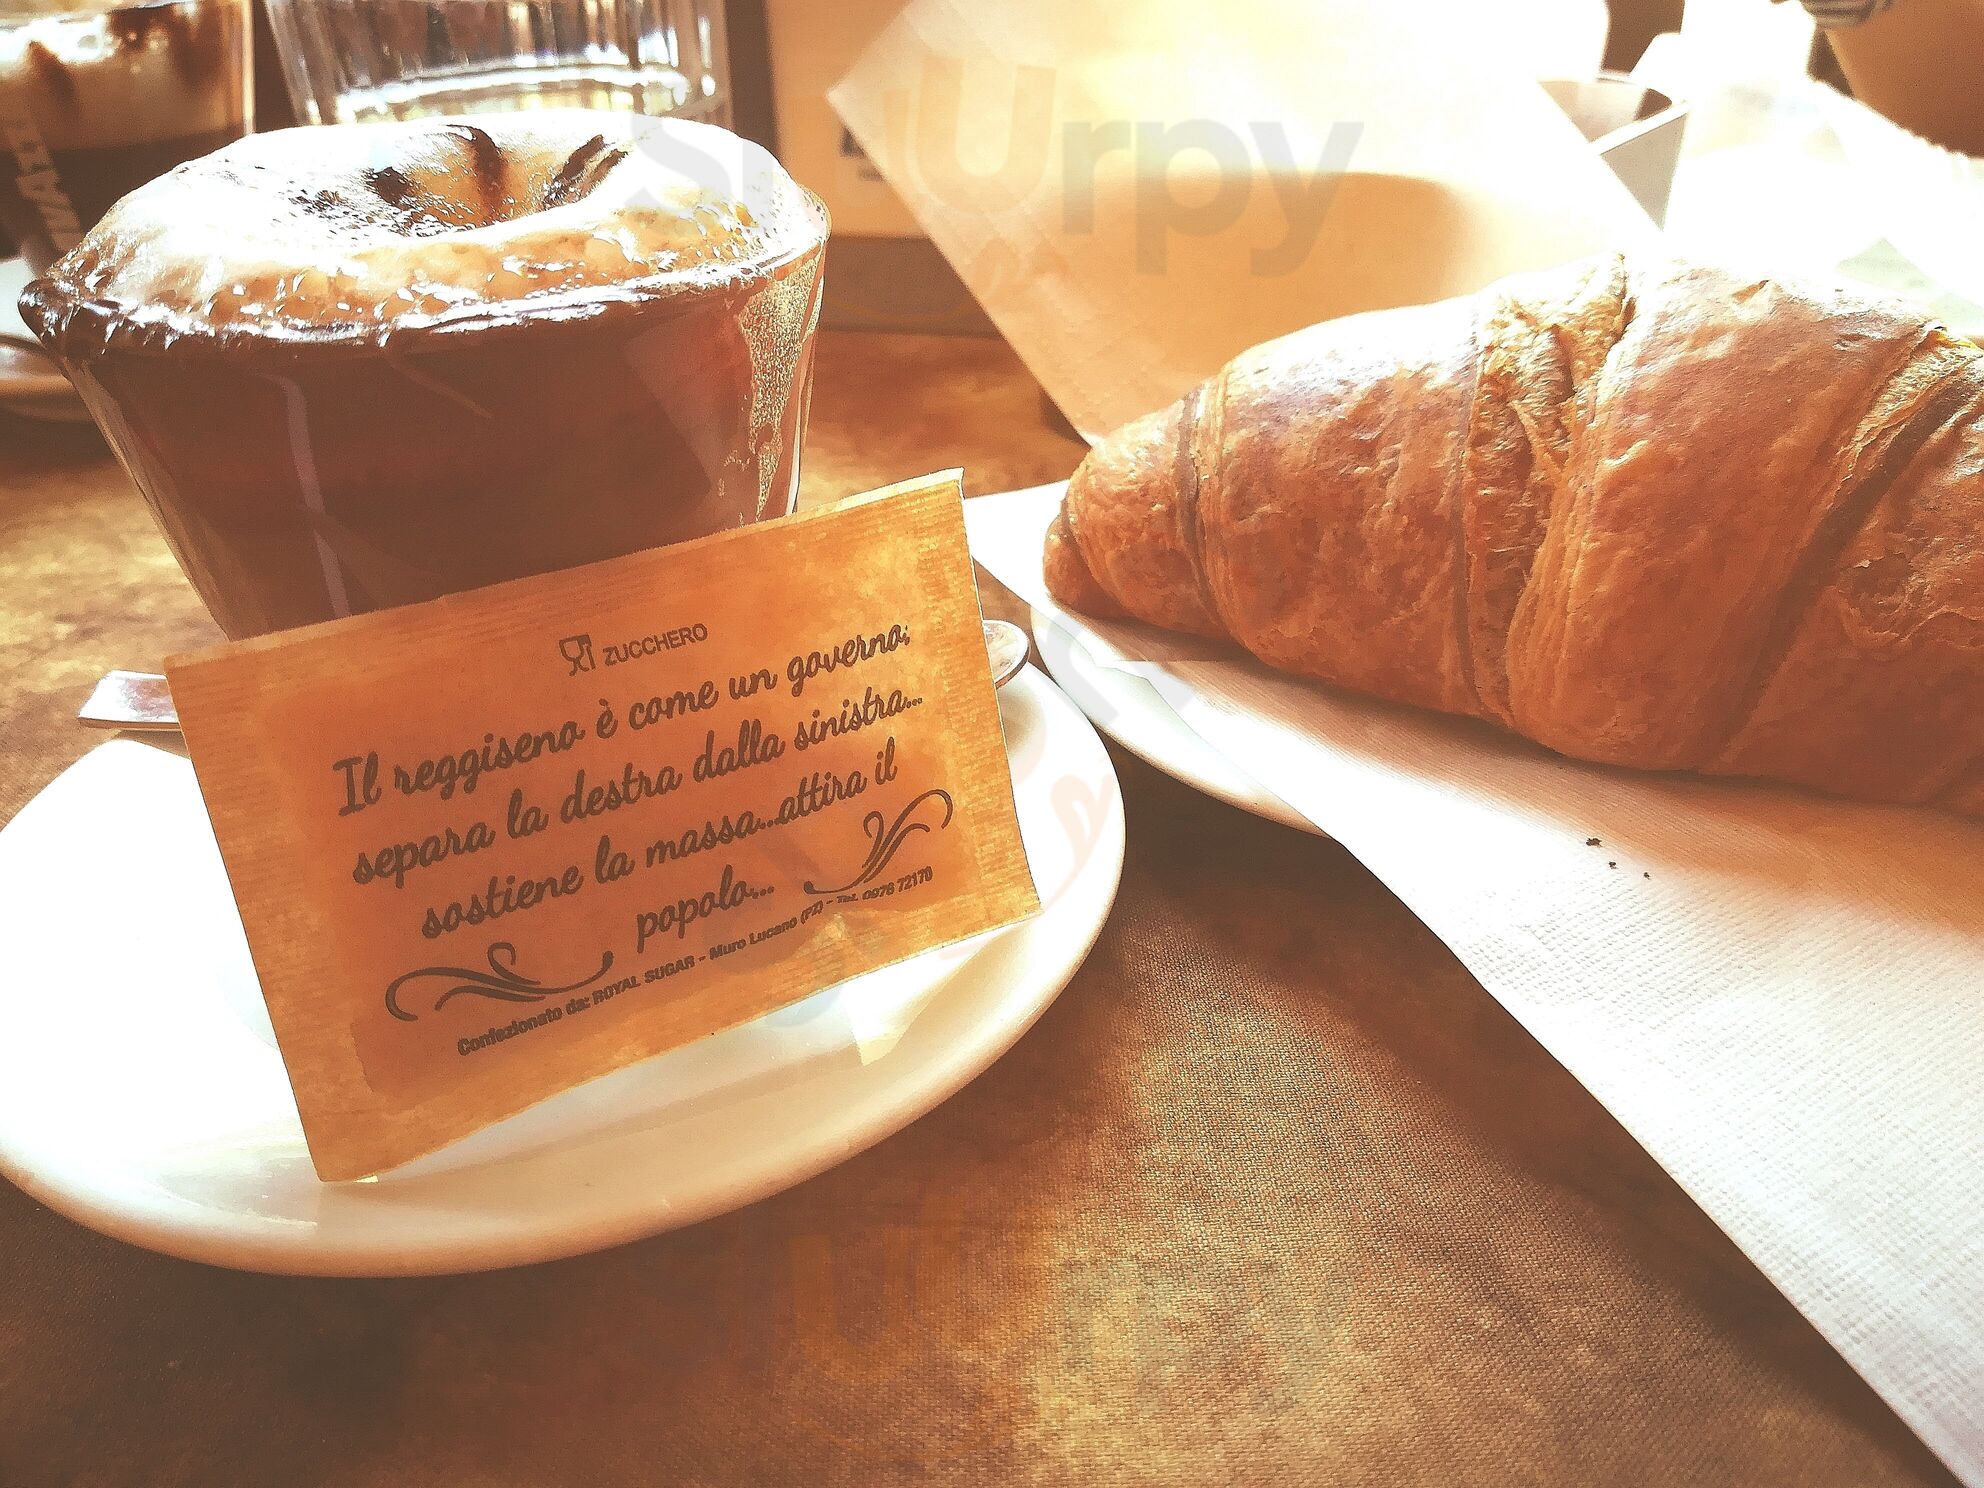 Slurpy
ZUCCHERO
Il reggiseno è come un governo:
separa la destra dalla sinistra...
sostiene la massa...attira il
popolo...
Confezionato da: ROYAL SUGAR - Muro Lucano (PZ) - Tel. 0976 72170